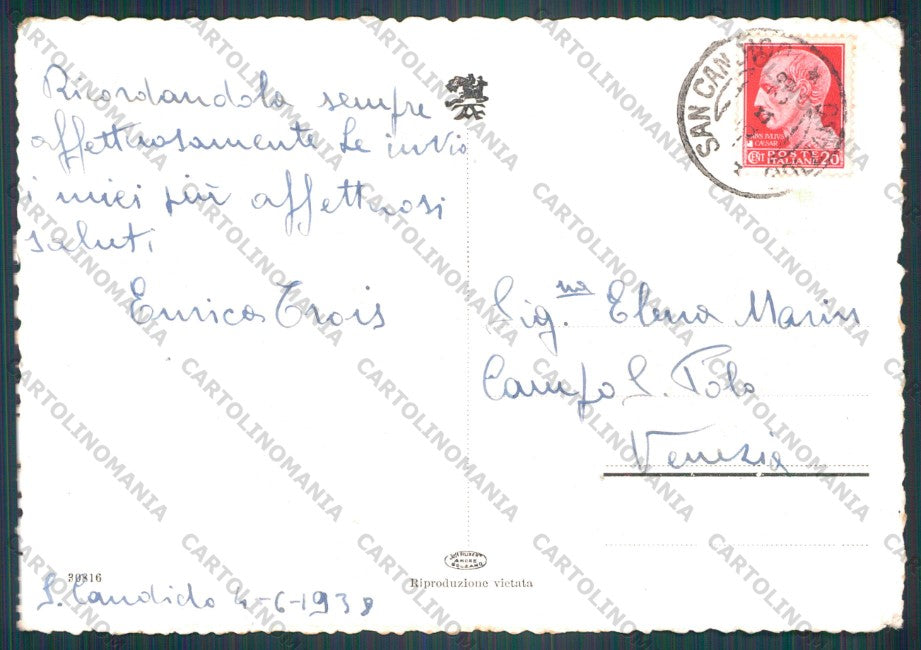 Ricordandola sempre
affettuosamente Le invio
i miei più affettuosi
saluti
Enrica Trois
Sig.na Elena Marin
Campo S. Polo
Venezia
SAN CAN
DIVUS JULIUS
CAESAR
CENT POSTE ITALIANE 20
BOLZANO
39816
Riproduzione vietata
S. Candido 4-6-1938
CARTOLINOMANIA